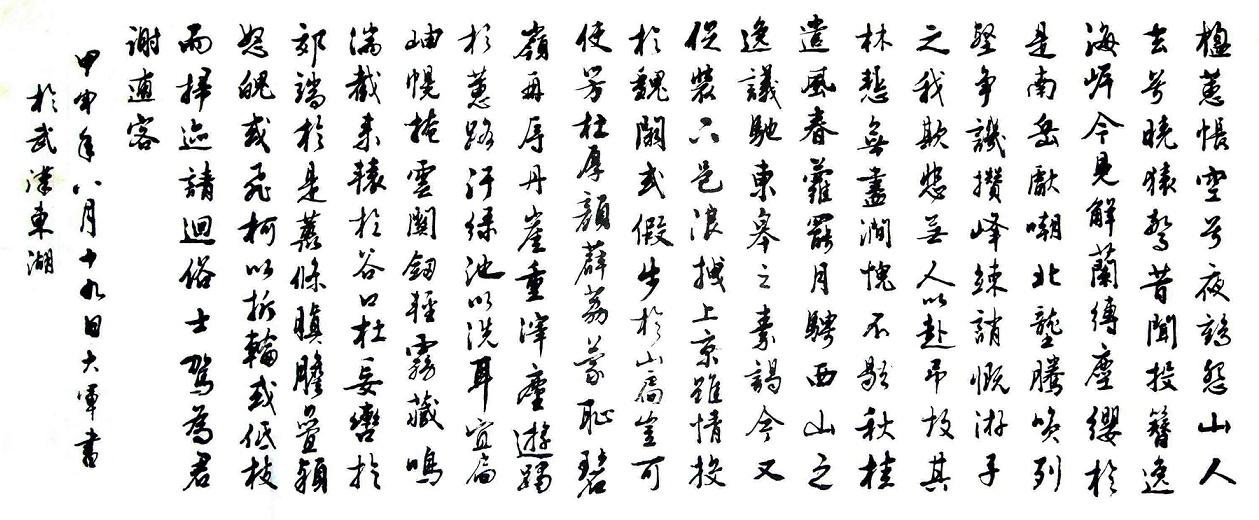 楹蕙帳空兮夜鶴怨山人
去兮曉猿驚昔聞投簪逸
海岸今見解蘭縛塵纓於
是南岳獻嘲北壟騰笑列
壑爭譏攢峰竦誚慨游子
之我欺悲無人以赴弔故其
林慙無盡澗愧不歇秋桂
遣風春蘿罷月騁西山之
逸議馳東皋之素謁今又
促裝下邑浪拽上京雖情投
於魏闕或假步於山扃豈可
使芳杜厚顏薜荔蒙恥碧
嶺再辱丹崖重滓塵遊躅
於蕙路汙綠池以洗耳宜扃
岫幌掩雲關斂輕霧藏鳴
湍截来轅於谷口杜妄轡於
郊端於是叢條瞋膽疊穎
怒魄或飛柯以折輪或低枝
而掃迹請迴俗士駕為君
謝逋客
甲申年八月十九日大軍書
於武漢東湖